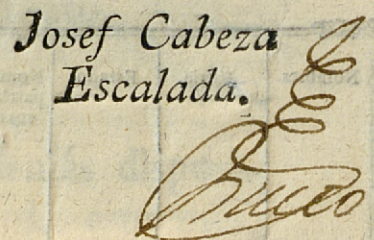 Josef Cabeza
Escalada.